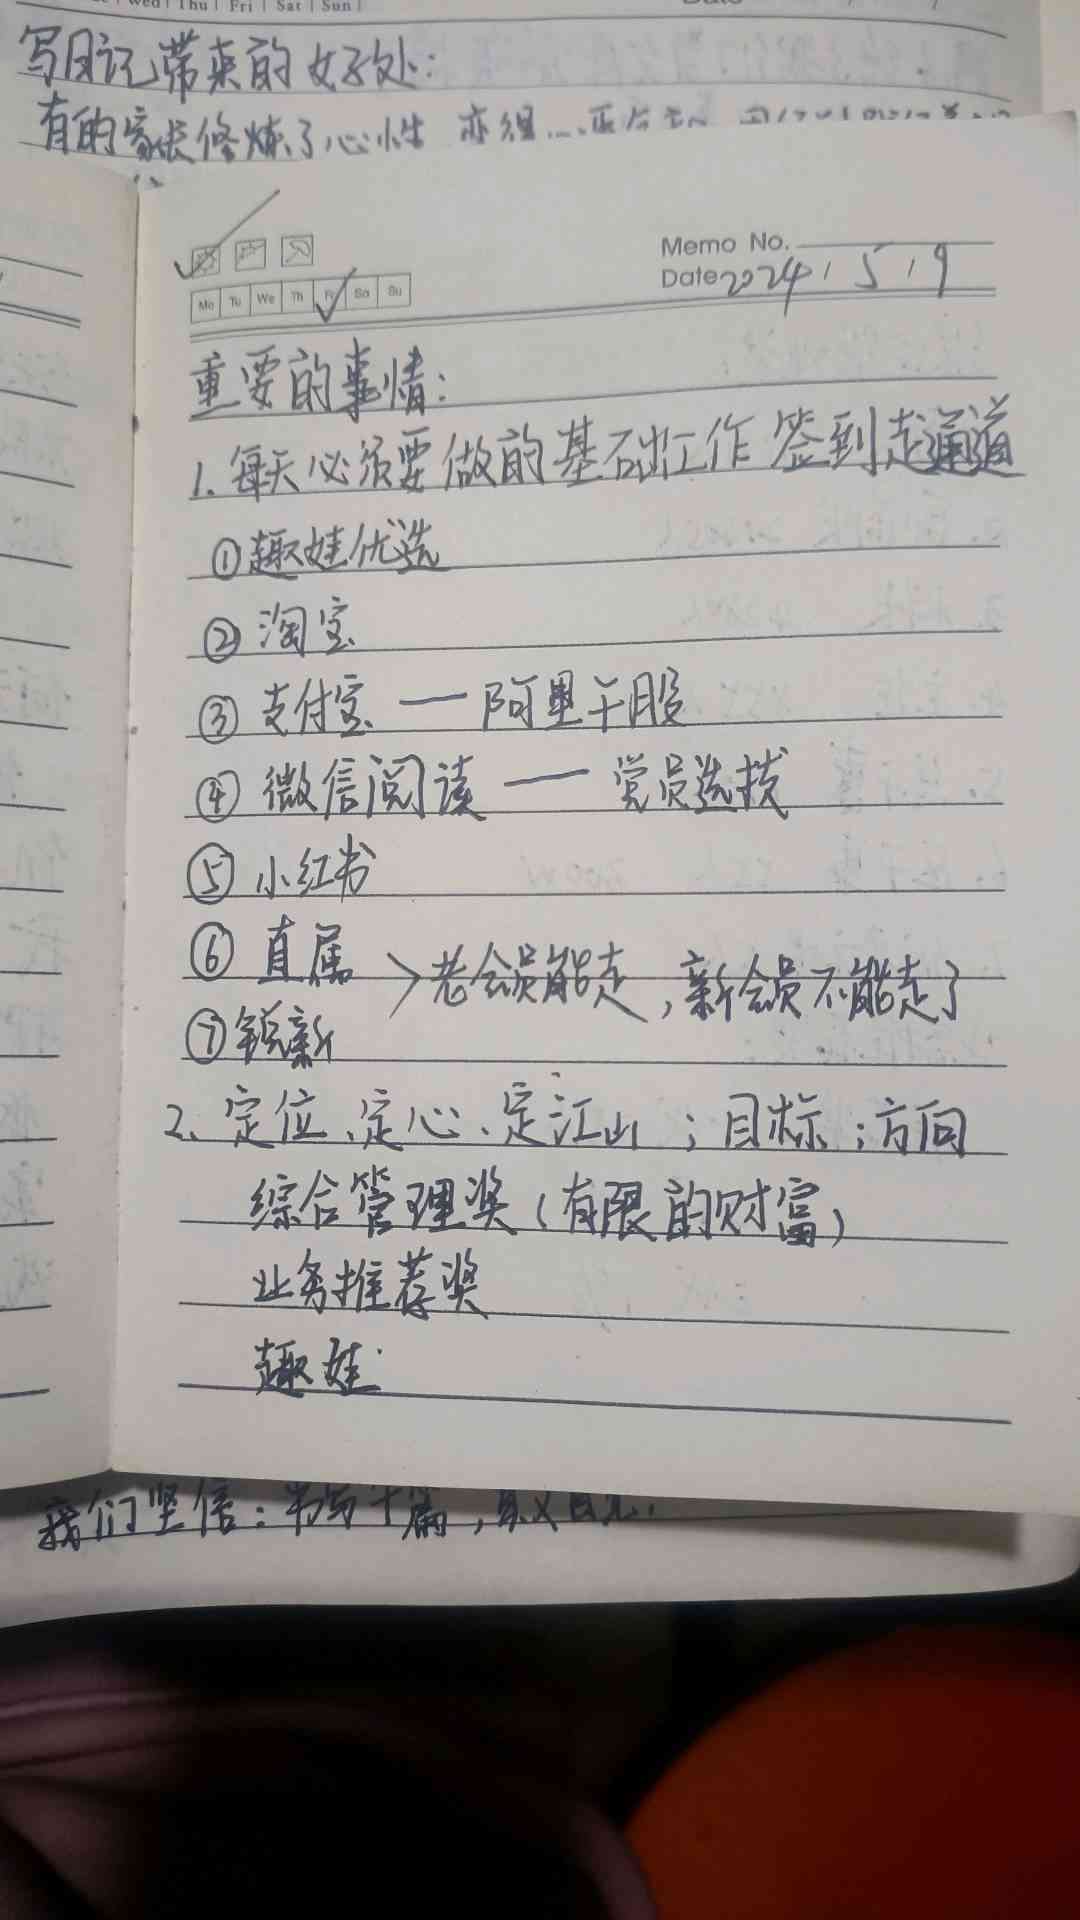 Wed | Thu | Fri | Sat | Sun |
写日记带来的好处:
有的家长修炼了心性
Memo No.
Mo Tu We Th Fr Sa Su
Date 2024 / 5 / 9
重要的事情:
1. 每天必须要做的基础工作 签到走通道
① 趣娃优选
② 淘宝
③ 支付宝 — 阿里干股
④ 微信阅读 — 党员选拔
⑤ 小红书
⑥ 直属
> 老会员能走,新会员不能走了
⑦ 锐新
2、定位、定心、定江山;目标;方向
综合管理奖(有限的财富)
业务推荐奖
趣娃
我们坚信:书写千篇,